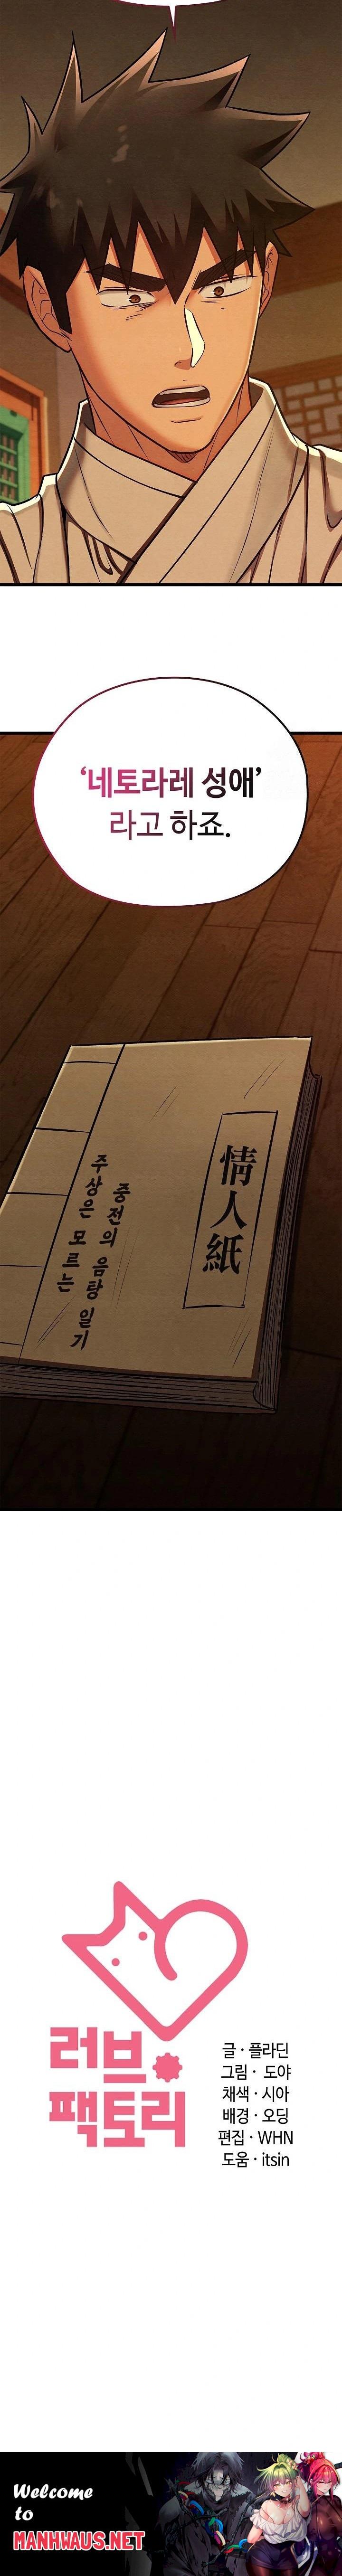 ‘네토라레 성애’
라고 하죠.
情人紙
중전의 음탕 일기
주상은 모르는
러브
팩토리
글 · 플라딘
그림 · 도야
채색 · 시아
배경 · 오딩
편집 · WHN
도움 · itsin
Welcome
to
MANHWAUS.NET